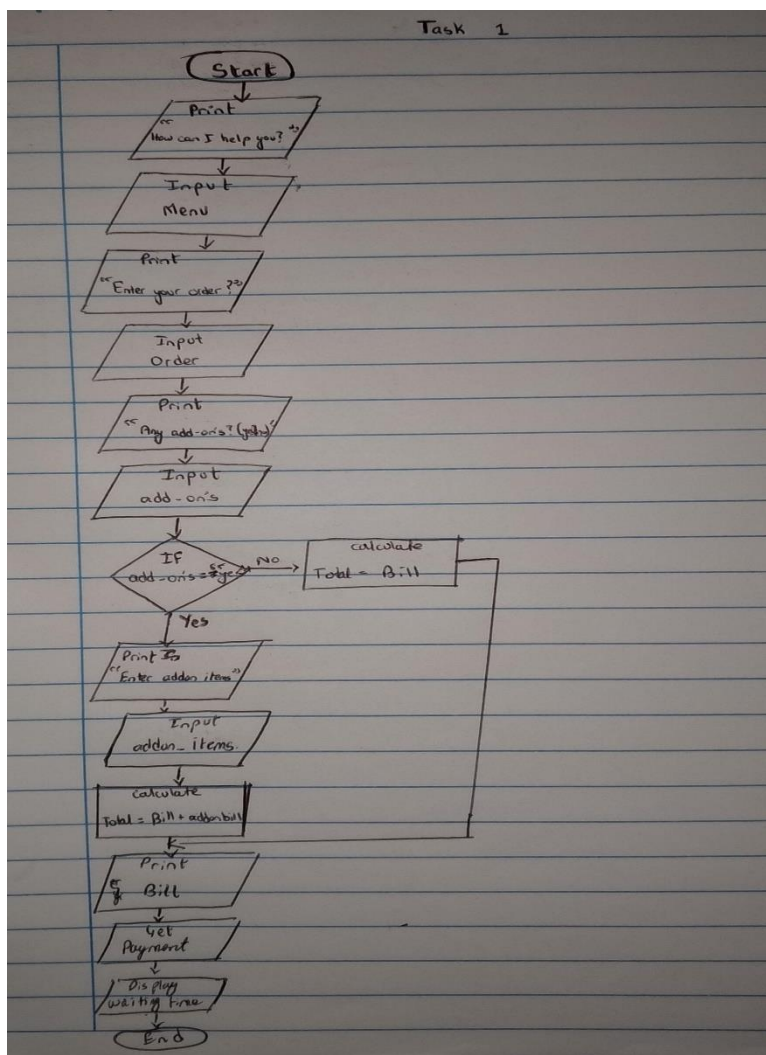 Task 1
Start
Print
"How can I help you?"
Input
Menu
Print
"Enter your order?"
Input
Order
Print
"Any add-ons?
Input
add-ons
If
add-ons = yes
No
calculate
Total = Bill
Yes
Print
"Enter addon items"
Input
addon_items.
calculate
Total = Bill + addonbill
Print
Bill
Get
Payment
Display
waiting time
End